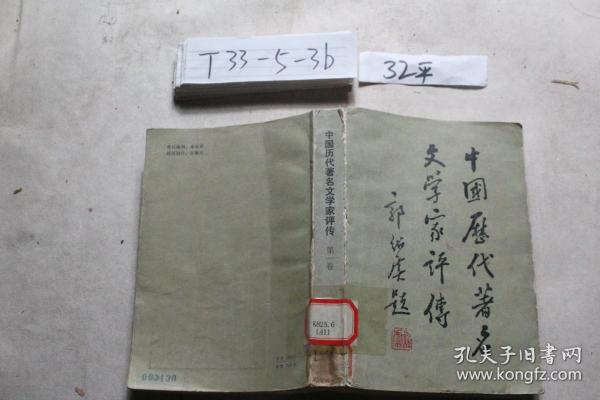 T33-5-3b
32平
中國歷代著名
文学家评傳
郭绍虞題
中国历代著名文学家评传
第一卷
K825.6
1411
003130
孔夫子旧书网
www.kongfz.com